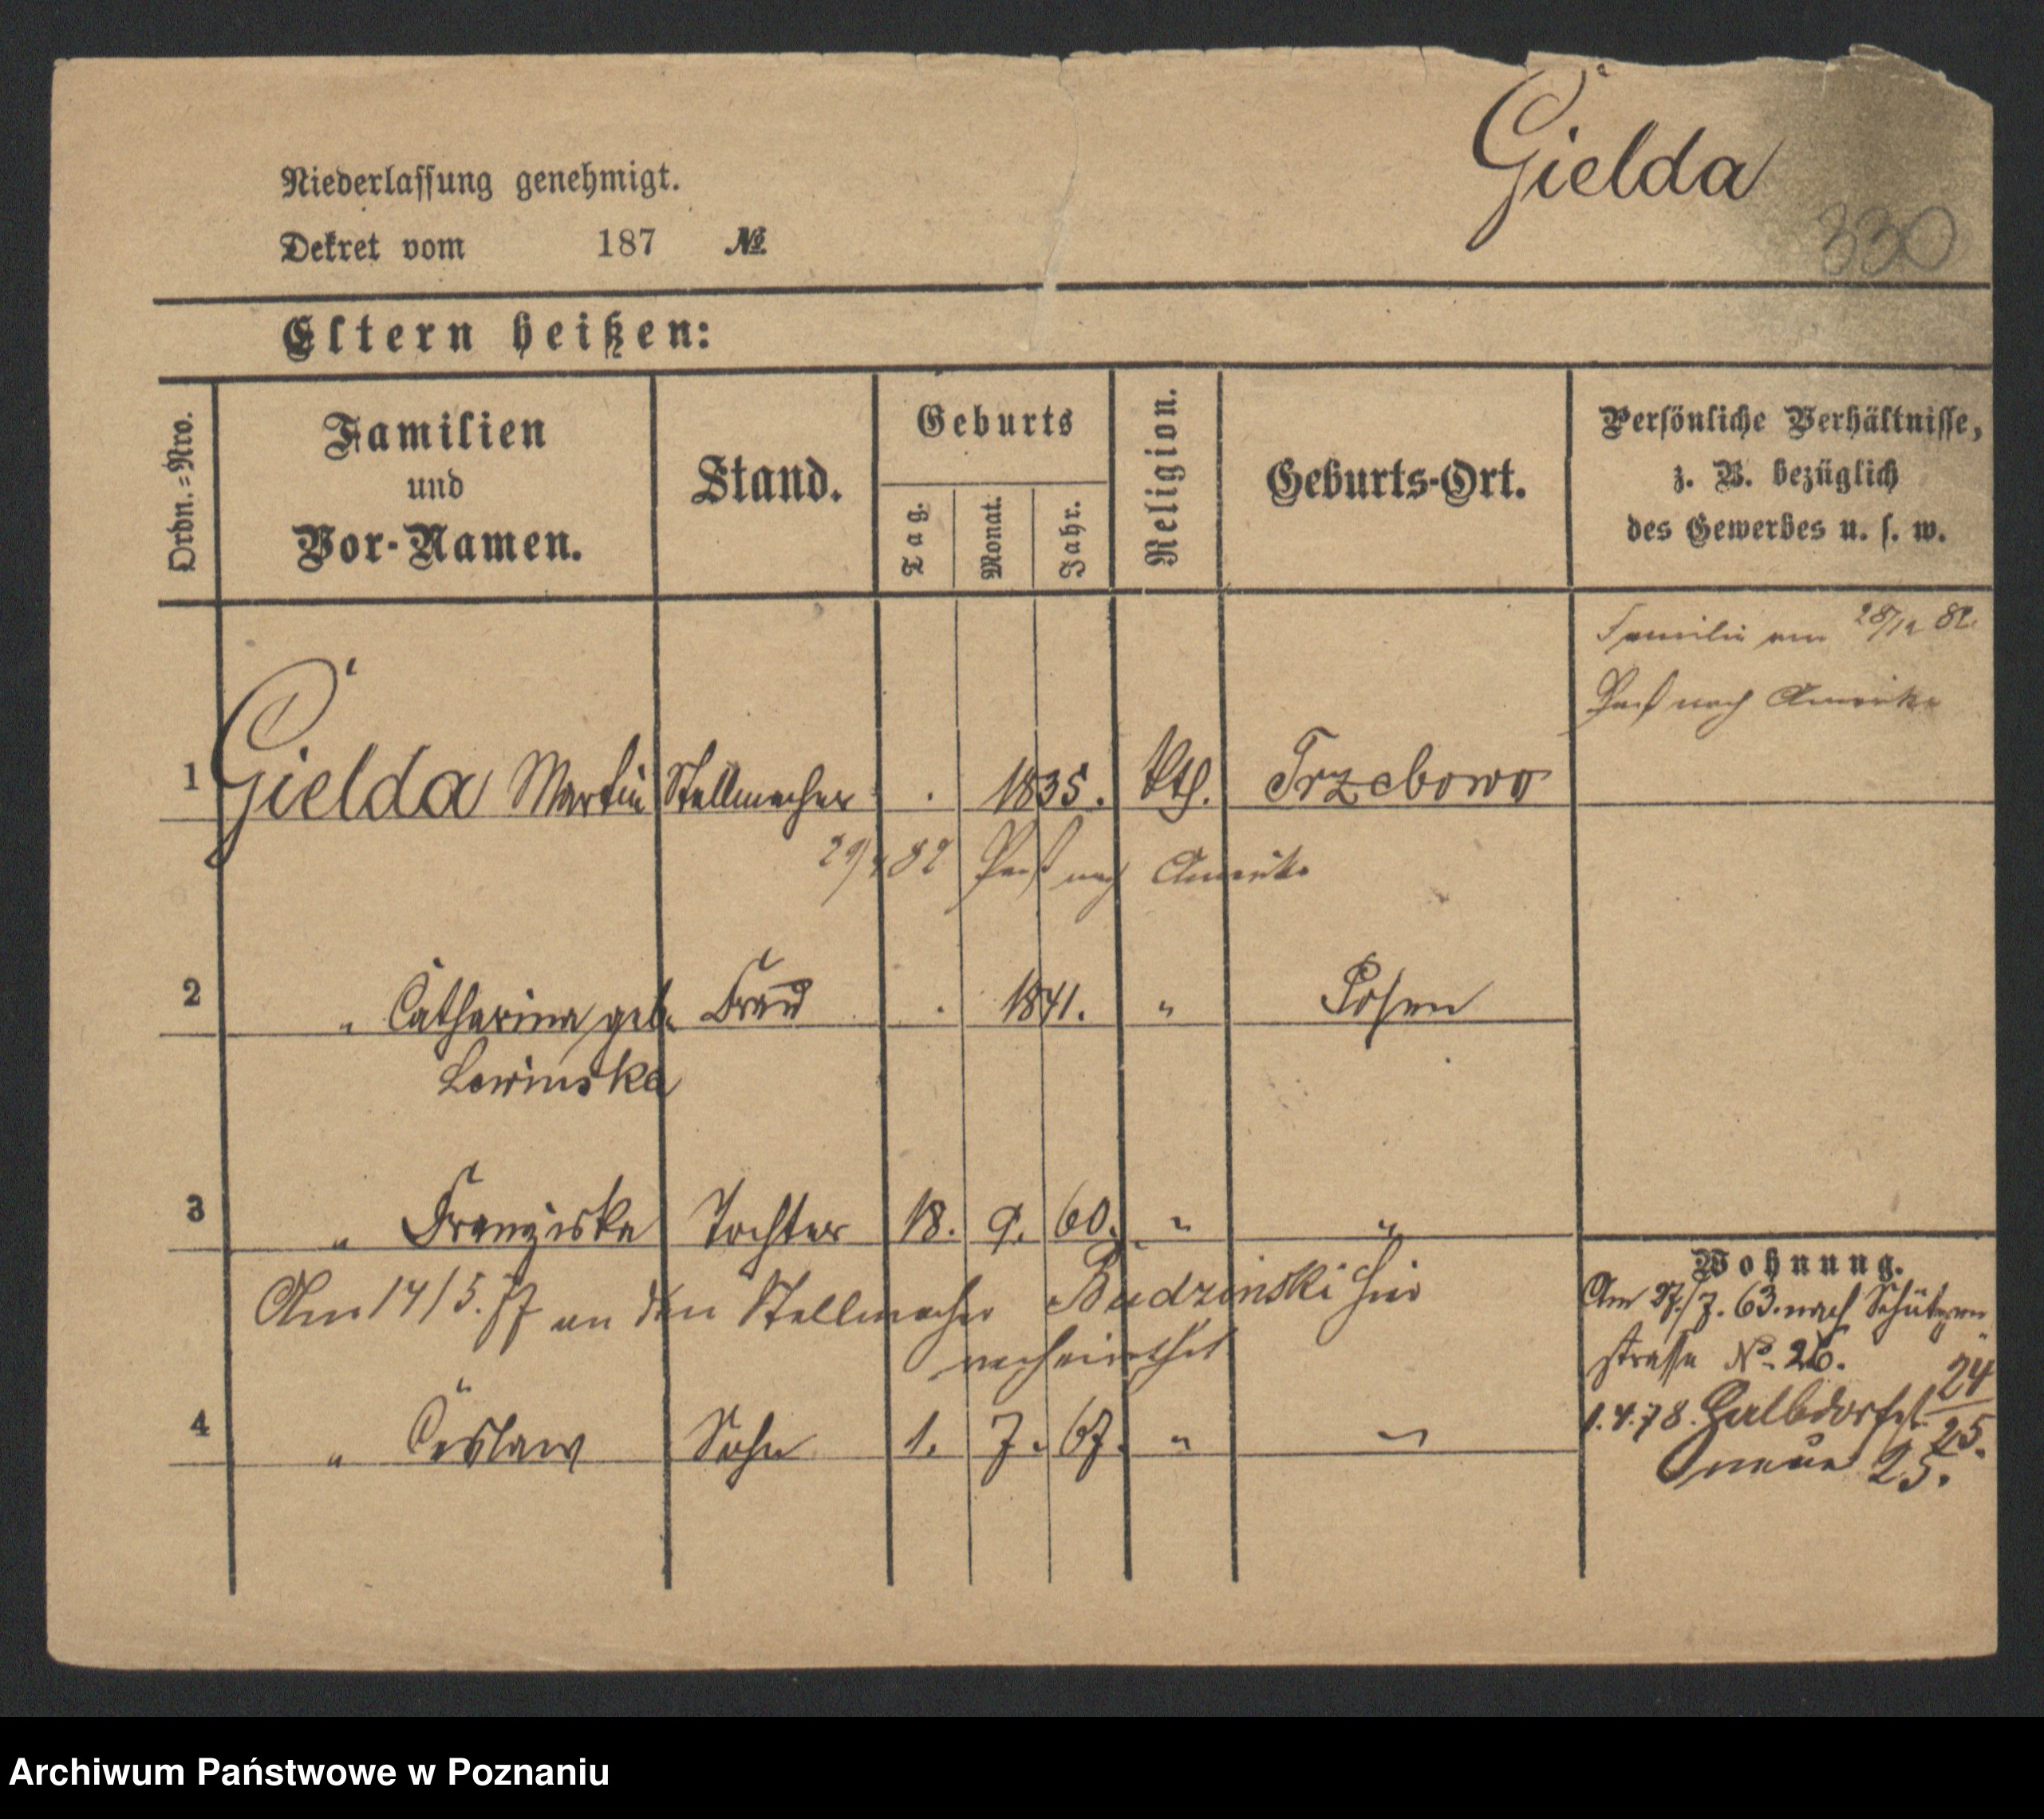 Gielda
330
Niederlassung genehmigt.
Dekret vom 187 №
Eltern heißen:
Ordn.=Nro.
Familien
und
Vor-Namen.
Stand.
Geburts
Tag.
Monat.
Jahr.
Religion.
Geburts-Ort.
Persönliche Verhältnisse,
z. B. bezüglich
des Gewerbes u. s. w.
Familie am 28/12 82
Paß nach Amerika
1 Gielda Martin Stellmacher . 1835. kth. Trzebowo
29/4 82 Paß nach Amerika
2 " Catharina geb. Frau . 1841. " Posen
Lewinska
3 " Franziska Tochter 18. 9. 60. " "
Am 14/5.77 an den Stellmacher Budzinski hier
verheirathet
4 " Česlaw Sohn 1. 7. 67. " "
Wohnung.
Am 27./7. 63. nach Schützen
straße No. 26.
1.4.78. Halbdorfst 24/25.
neue 25.
Archiwum Państwowe w Poznaniu